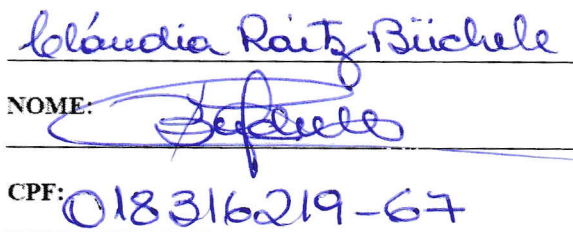 Cláudia Raitz Büchele
NOME:
CPF: 018316219-67